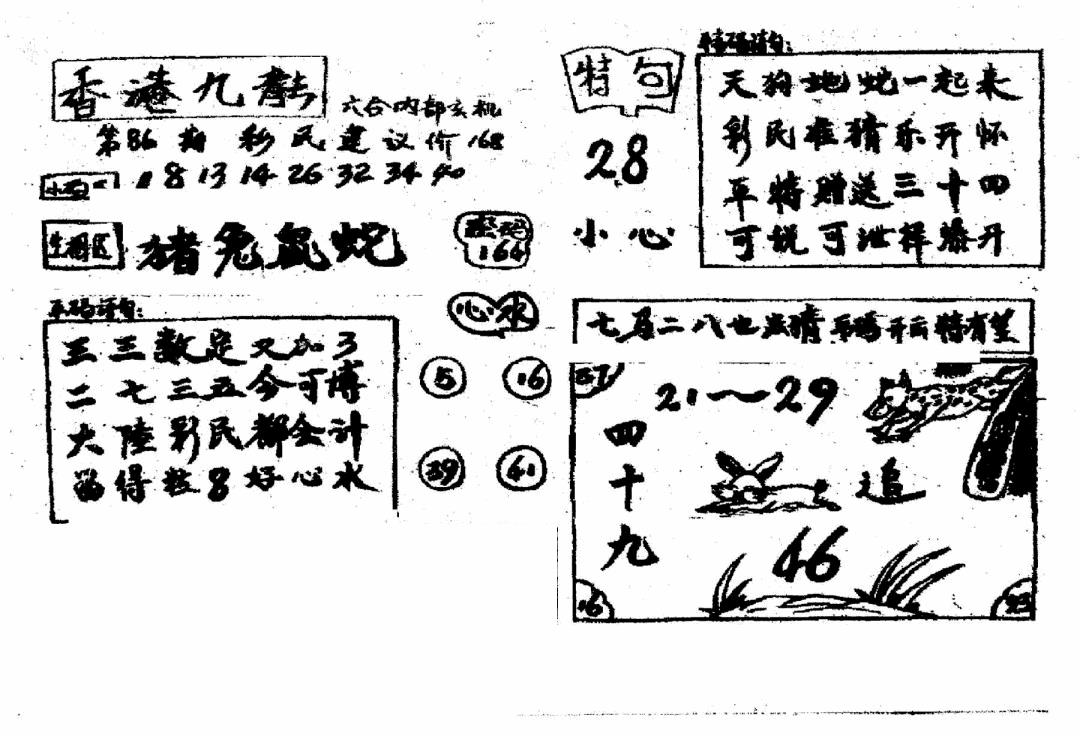 香港九龍
六合内部玄机
第86期 彩民建议价168
8 13 14 26 32 34 40
生肖区 猪兔鼠蛇
164
三三数定又加3
二七三五今可博
大陸彩民都会计
留得粒8好心水
心水
5 16
39 41
特句
28
小心
天狗地蛇一起来
彩民谁猜乐开怀
平特赠送三十四
可说可泄择
开
七尾二八也
猜
特有望
37
21〜29
四十九
追
46
16